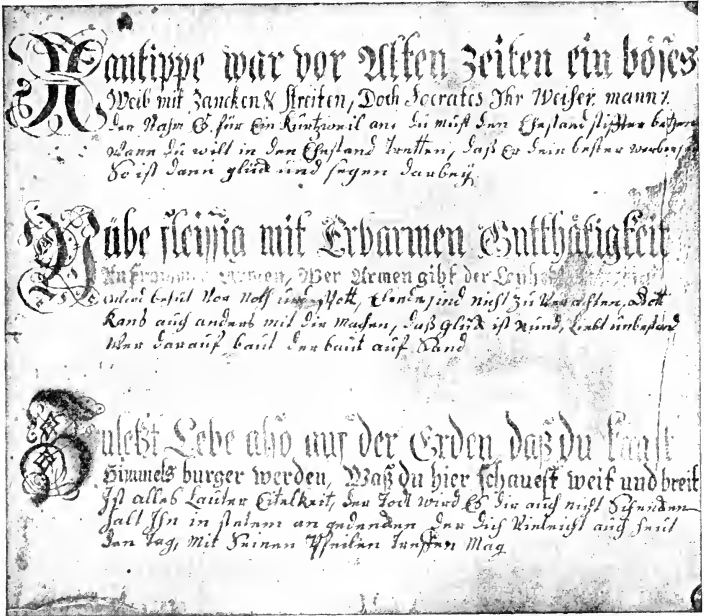 Xantippe war vor Alten zeiten ein böses
Weib mit Zancken & streiten, Doch Socrates Ihr Weiser mann,
der Nahm Es für Ein Kurtzweil an: du must den Ehestand stiffter
Wann du wilt in den Ehestand tretten, daß Er dein bester
So ist dann glück und segen darbey.
Übe fleissig mit Erbarmen Gutthätigkeit
Armen, Wer Armen gibt der
wird befüt Vor Noth und Spott, Elende sind nicht zu Verachten, Gott
Kans auch anders mit dir Machen, daß glück ist Rund, liebt unbestand
Wer darauf baut der baut auf Sand
Zuletzt Lebe also auf der Erden daß du kanst
Himmels burger werden, Waß du hier schauest weit und breit
Ist alles Lauter Eitelkeit, der Todt wird Es dir auch nicht Schencken
halt Ihn in stetem an gedencken der dich Vieleicht auch heut
den tag, mit Seinen Pfeilen treffen Mag